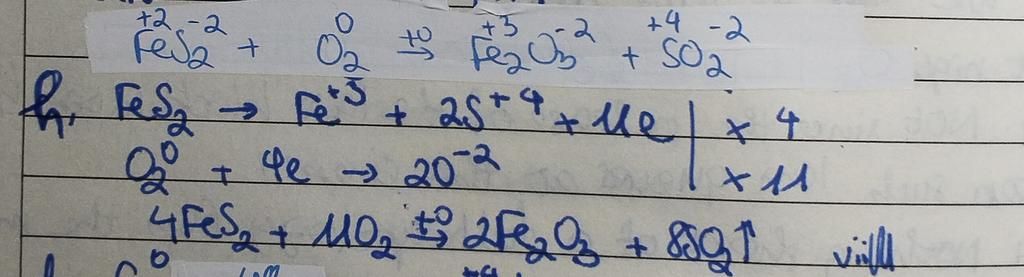 +2 -2 0 +3 -2 +4 -2
FeS₂ + O₂ →t⁰ Fe₂O₃ + SO₂
h, FeS₂ → Fe⁺³ + 2S⁺⁴ + 11e | x 4
O₂⁰ + 4e → 2O⁻² | x 11
4FeS₂ + 11O₂ →t⁰ 2Fe₂O₃ + 8SO₂↑